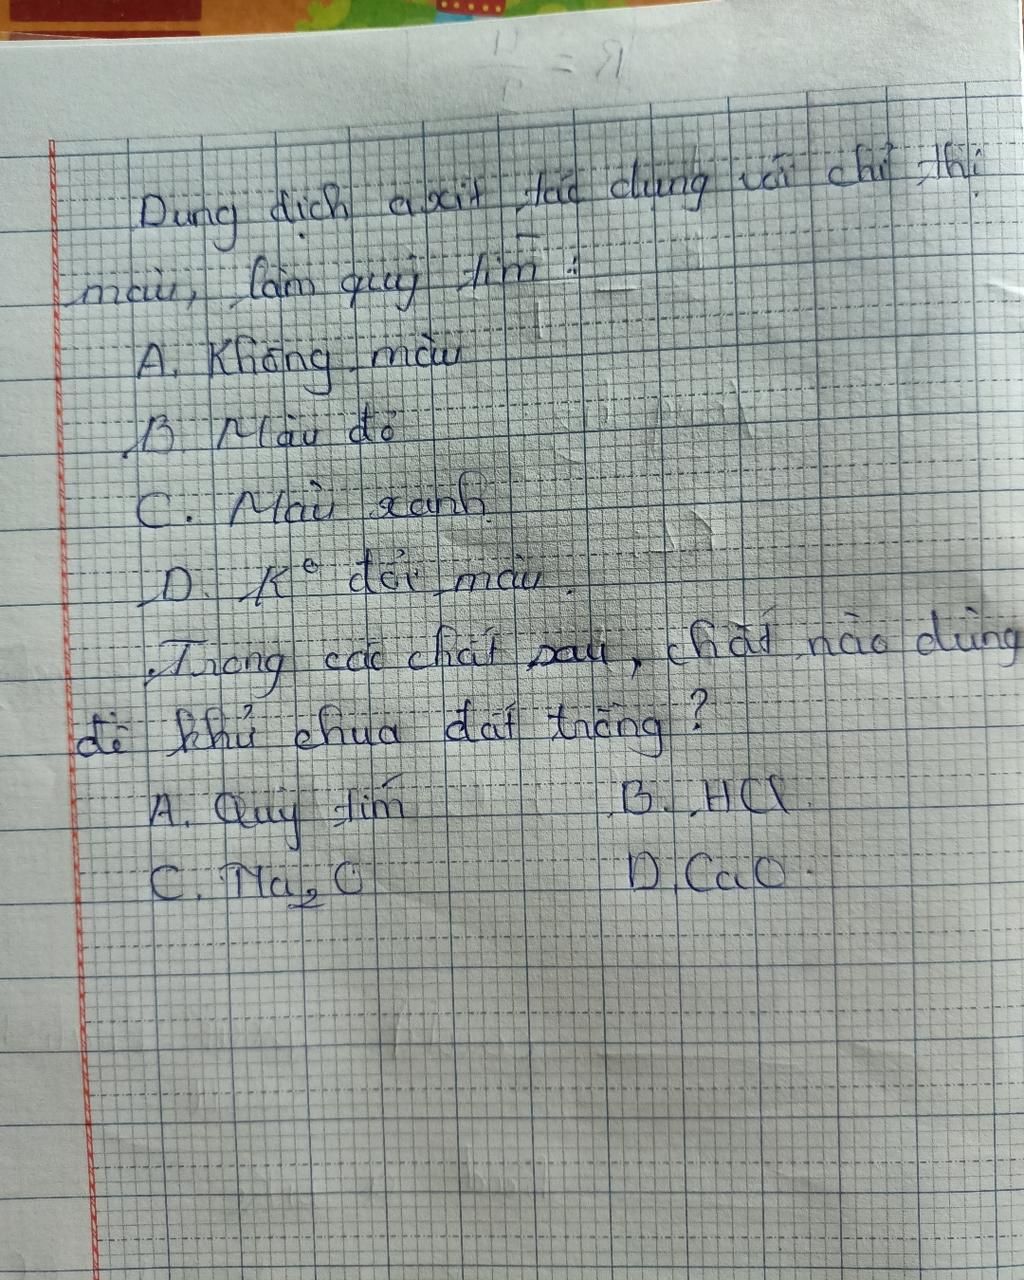 Dung dịch axit tác dụng với chỉ thị
màu, làm quỳ tím :
A. Không màu
B. Màu đỏ
C. Màu xanh
D. K° đổi màu.
Trong các chất sau, chất nào dùng
để khử chua đất trồng ?
A. Quỳ tím B. HCl.
C. Na₂O D. CaO.